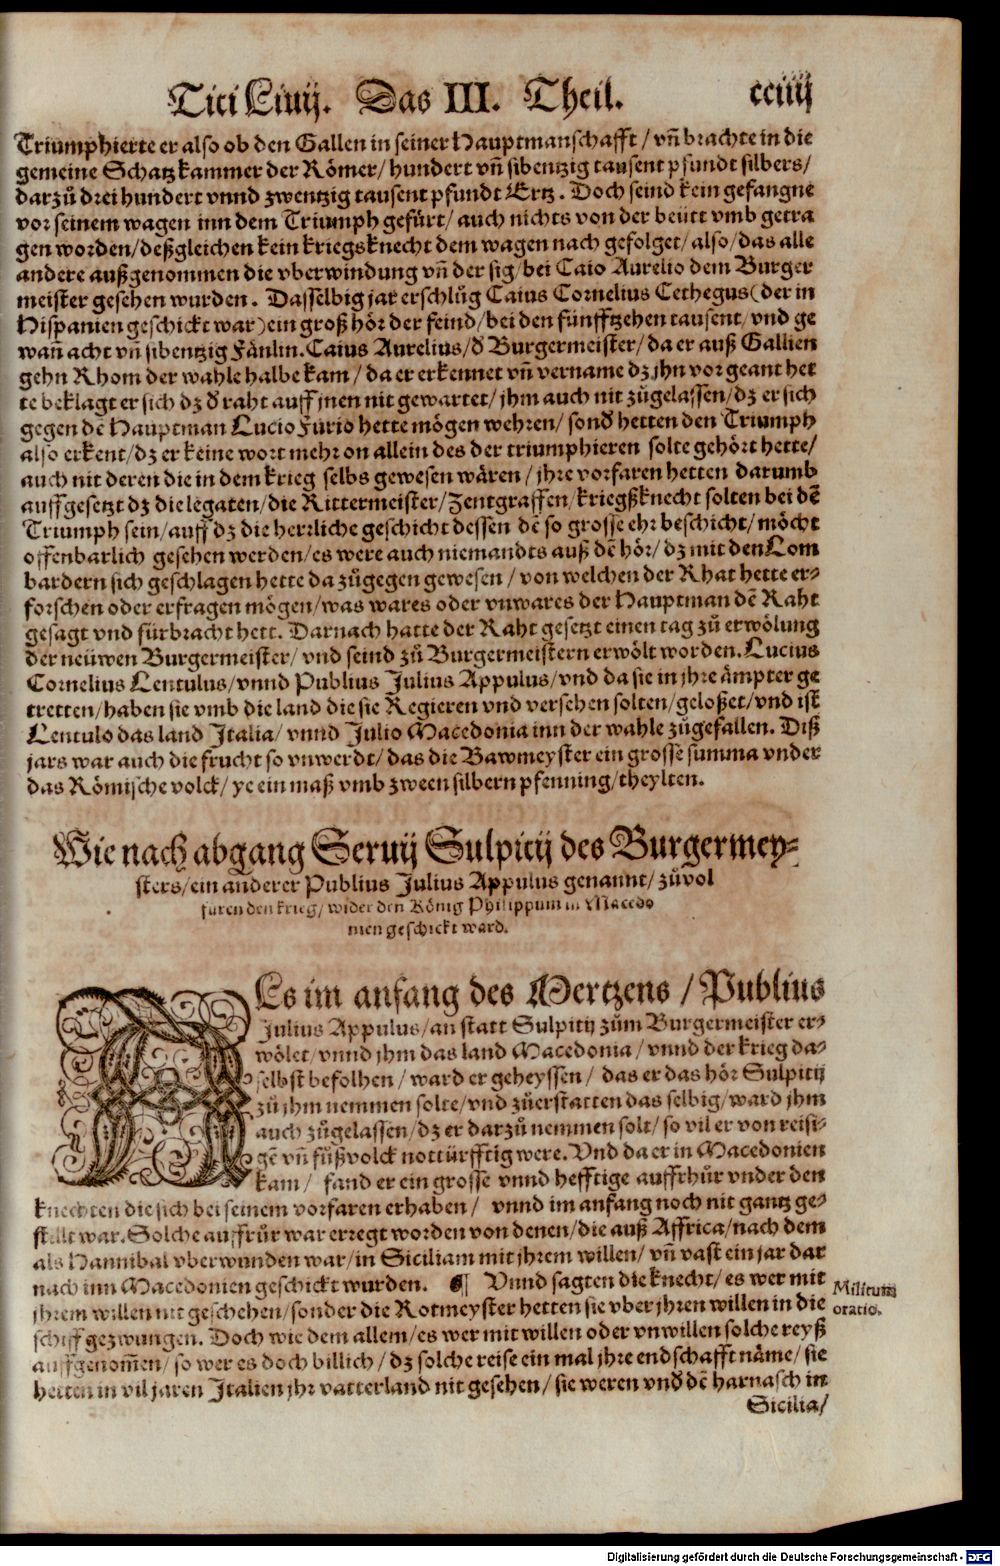 Titi Liuij. Das III. Theil. cciiij
Triumphierte er also ob den Gallen in seiner Hauptmanschafft / vñ brachte in die
gemeine Schatzkammer der Römer / hundert vñ sibentzig tausent pfundt silbers /
darzů drei hundert vnnd zwentzig tausent pfundt Ertz. Doch seind kein gefangne
vor seinem wagen inn dem Triumph gefürt / auch nichts von der beütt vmb getra
gen worden / deßgleichen kein kriegsknecht dem wagen nach gefolget / also / das alle
andere außgenommen die vberwindung vñ der sig / bei Caio Aurelio dem Burger
meister gesehen wurden. Dasselbig jar erschlůg Caius Cornelius Cethegus (der in
Hispanien geschickt war) ein groß hör der feind / bei den fünfftzehen tausent / vnd ge
wañ acht vñ sibentzig Fänlin. Caius Aurelius / đ Burgermeister / da er auß Gallien
gehn Rhom der wahle halbe kam / da er erkennet vñ vername dz jhn vor geant het
te beklagt er sich dz đ raht auff jnen nit gewartet / jhm auch nit zůgelassen / dz er sich
gegen dē Hauptman Lucio Furio hette mögen wehren / sonđ hetten den Triumph
also erkent / dz er keine wort mehr on allein des der triumphieren solte gehört hette /
auch nit deren die in dem krieg selbs gewesen wären / jhre vorfaren hetten darumb
auffgesetzt dz die legaten / die Rittermeister / Zentgraffen / kriegßknecht solten bei dē
Triumph sein / auff dz die herzliche geschicht dessen dē so grosse ehr beschicht / möcht
offenbarlich gesehen werden / es were auch niemandts auß dē hör / dz mit den Lom
bardern sich geschlagen hette da zůgegen gewesen / von welchen der Rhat hette er-
forschen oder erfragen mögen / was wares oder vnwares der Hauptman dē Raht
gesagt vnd fürbracht hett. Darnach hatte der Raht gesetzt einen tag zů erwölung
der neüwen Burgermeister / vnd seind zů Burgermeistern erwölt worden. Lucius
Cornelius Lentulus / vnnd Publius Julius Appulus / vnd da sie in jhre ämpter ge
tretten / haben sie vmb die land die sie Regieren vnd versehen solten / geloßet / vnd ist
Lentulo das land Italia / vnnd Julio Macedonia inn der wahle zůgefallen. Diß
jars war auch die frucht so vnwerdt / das die Bawmeyster ein grosse summa vnder
das Römische volck / ye ein maß vmb zween silbern pfenning / theylten.
Wie nach abgang Seruij Sulpitij des Burgermey-
sters / ein anderer Publius Julius Appulus genannt / zůvol
füren den krieg / wider den König Philippum in Macedo
nien geschickt ward.
Es im anfang des Mertzens / Publius
Julius Appulus / an statt Sulpitij zům Burgermeister er-
wölet / vnnd jhm das land Macedonia / vnnd der krieg da-
selbst befolhen / ward er geheyssen / das er das hör Sulpitij
zů jhm nemmen solte / vnd zůerstatten das selbig / ward jhm
auch zůgelassen / dz er darzů nemmen solt / so vil er von reisi-
gē vñ fůßvolck nottürfftig were. Vnd da er in Macedonien
kam / fand er ein grosse vnnd hefftige auffrhůr vnder den
knechten die sich bei seinem vorfaren erhaben / vnnd im anfang noch nit gantz ge-
stillt war. Solche auffrůr war erregt worden von denen / die auß Affrica / nach dem
als Hannibal vberwunden war / in Siciliam mit jhrem willen / vñ vast ein jar dar
nach inn Macedonien geschickt wurden. ¶ Vnnd sagten die knecht / es wer mit
jhrem willen nit geschehen / sonder die Rotmeyster hetten sie vber jhren willen in die
schiff gezwungen. Doch wie dem allem / es wer mit willen oder vnwillen solche reyß
auffgenom̃en / so wer es doch billich / dz solche reise ein mal jhre endschafft näme / sie
hetten in vil jaren Italien jhr vatterland nit gesehen / sie weren vnđ dē harnasch in
Sicilia /
Militum
oratio.
Digitalisierung gefördert durch die Deutsche Forschungsgemeinschaft - DFG